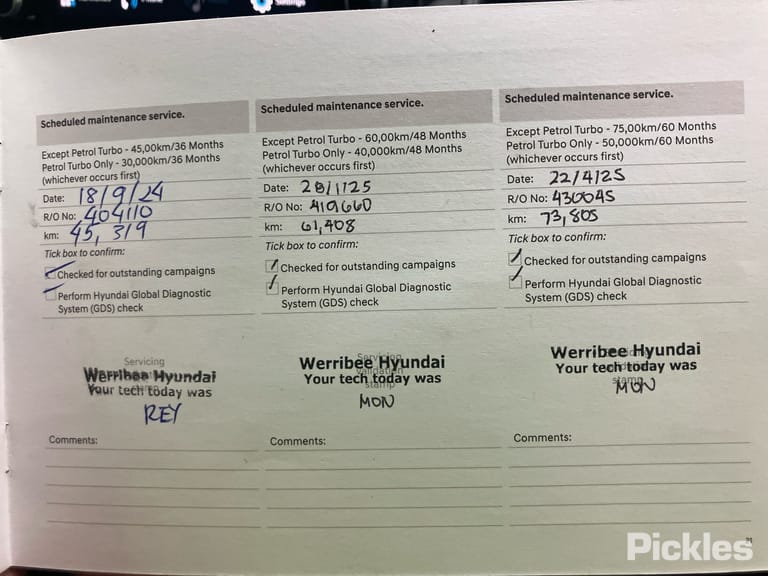 Settings
Scheduled maintenance service.
Except Petrol Turbo - 45,00km/36 Months
Petrol Turbo Only - 30,000km/36 Months
(whichever occurs first)
Date: 18/9/24
R/O No: 404110
km: 45,319
Tick box to confirm:
Checked for outstanding campaigns
Perform Hyundai Global Diagnostic
System (GDS) check
Servicing
Werribee Hyundai
Your tech today was
REY
Comments:
Scheduled maintenance service.
Except Petrol Turbo - 60,00km/48 Months
Petrol Turbo Only - 40,000km/48 Months
(whichever occurs first)
Date: 28/1/25
R/O No: 419660
km: 61,408
Tick box to confirm:
Checked for outstanding campaigns
Perform Hyundai Global Diagnostic
System (GDS) check
Servicing
Werribee Hyundai
validation
Your tech today was
stamp
MON
Comments:
Scheduled maintenance service.
Except Petrol Turbo - 75,00km/60 Months
Petrol Turbo Only - 50,000km/60 Months
(whichever occurs first)
Date: 22/4/25
R/O No: 430045
km: 73,805
Tick box to confirm:
Checked for outstanding campaigns
Perform Hyundai Global Diagnostic
System (GDS) check
Werribee Hyundai
Your tech today was
stamp
MON
Comments:
Pickles